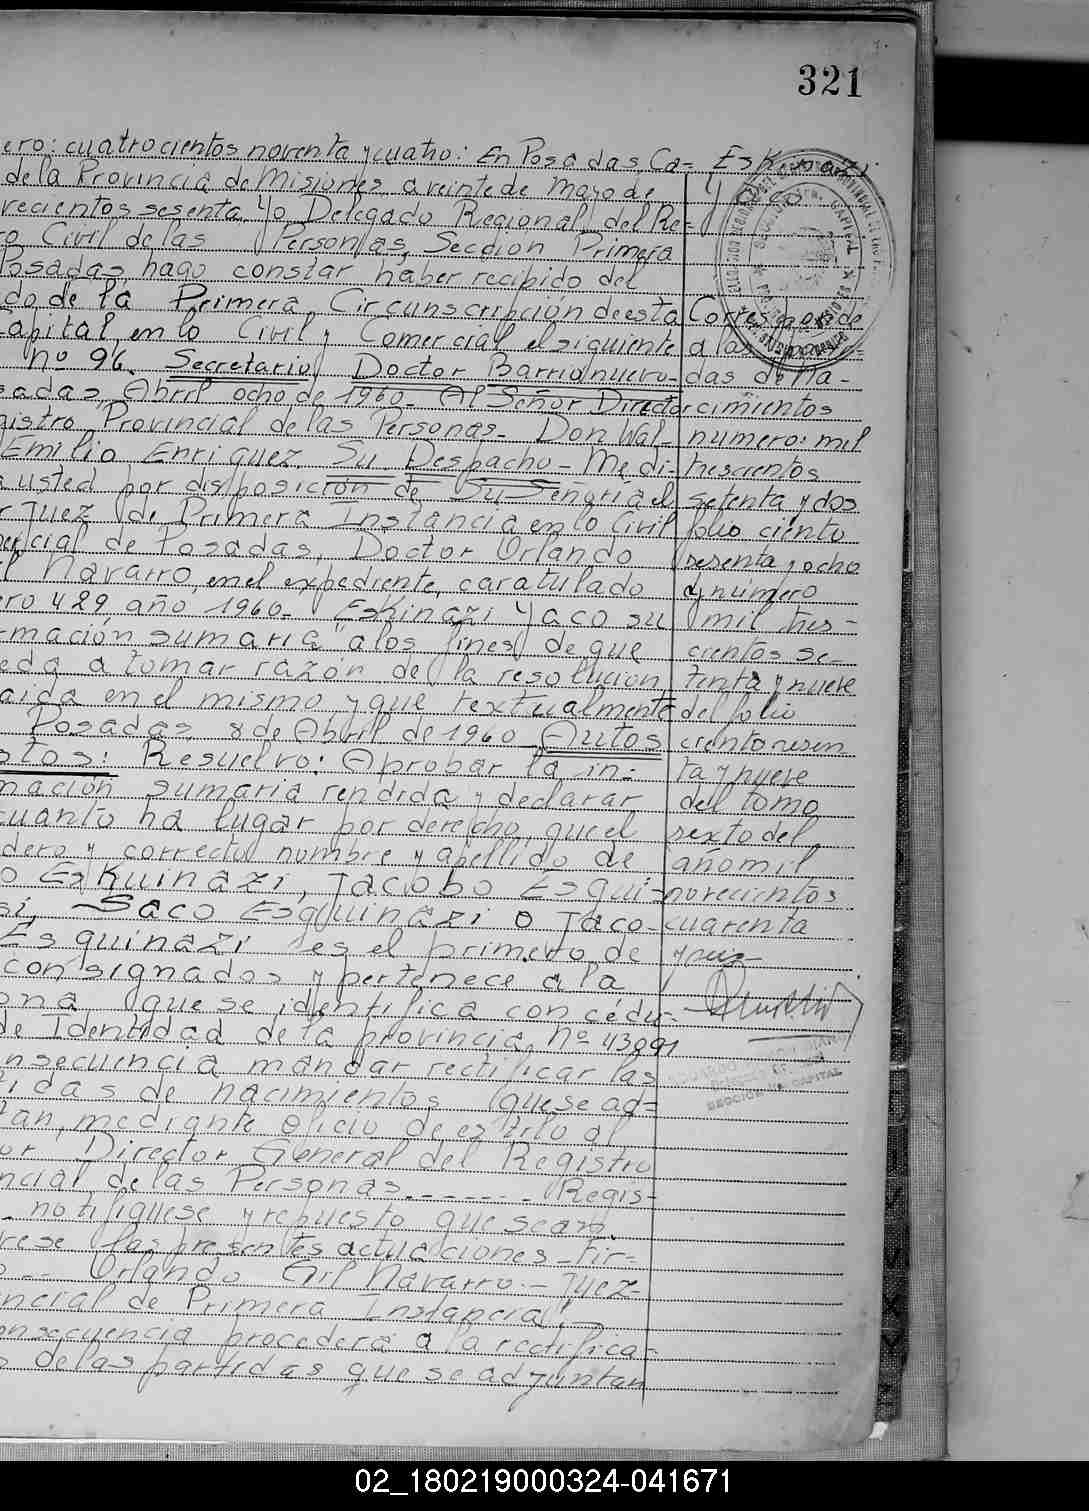 321
ero: cuatrocientos noventa y cuatro: En Posadas, Ca=
de la Provincia de Misiones a veinte de Mayo de
vecientos sesenta. Yo Delegado Regional del Re-
ro Civil de las Personas, Sección Primera
Posadas, hago constar haber recibido del
do de la Primera Circunscripción de esta
Capital, en lo Civil y Comercial el siguiente
nº 96. Secretario Doctor Barrionuevo-
sadas, Abril ocho de 1960- Al Señor Director
gistro Provincial de las Personas- Don Wal-
Emilio Enriquez. Su Despacho- Me di-
a usted por disposición de Su Señoria el
r Juez de Primera Instancia en lo Civil
ercial de Posadas, Doctor Orlando
l Navarro, en el expediente, caratulado
ero 429 año 1960- Eskinazi Yaco su
rmación sumaria" a los fines de que
eda a tomar razón de la resolución
aida en el mismo y que textualmente
Posadas 8 de Abril de 1960 Autos
stos: Resuelvo: Aprobar la in=
mación sumaria rendida y declarar
cuanto ha lugar por derecho, que el
dero y correcto nombre y apellido de
o Eskuinazi, Jacobo Esqui-
si, Saco Esquinazi o Jaco-
Esquinazi es el primero de
consignados y pertenece a la
ona que se identifica con cédu-
de Identidad de la provincia nº 43991
nsecuencia mandar rectificar las
idas de nacimientos que se ad=
tan, mediante oficio de estilo al
or Director General del Registro
ncial de las Personas-------. Regis-
. notifiquese y repuesto que sean
rese las presentes actuaciones- Fir=
o-- Orlando Gil Navarro.- Juez-
ncial de Primera Instancia".
onsecuencia procederá a la rectifica-
s de las partidas que se adjuntan
Yaco
Corresponde
das de Na-
cimientos
numero: mil
trescientos
setenta y dos
folio ciento
sesenta y ocho
y número
mil tres-
cientos se-
tenta y nueve
del folio
ciento sesen
ta y nueve
del tomo
sexto del
año mil
novecientos
cuarenta
SECCION 1a. CAPITAL
02_180219000324-041671